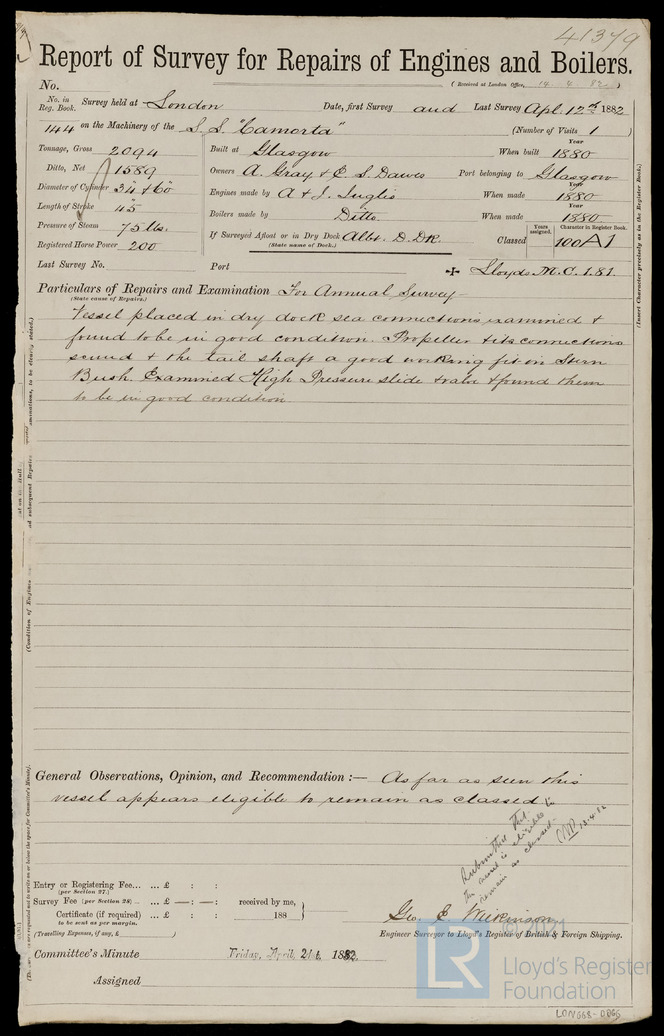 41379
Report of Survey for Repairs of Engines and Boilers.
No.
(Received at London Office, 14 4 82)
No. in Reg. Book. Survey held at London Date, first Survey and Last Survey Apl. 12th 1882
144 on the Machinery of the S.S. "Camorta" (Number of Visits 1)
Tonnage, Gross 2094 Built at Glasgow When built Year 1880
Ditto, Net 1589 Owners A. Gray & E. S. Dawes Port belonging to Glasgow
Diameter of Cylinder 34 & 60" Engines made by A & J. Inglis When made Year 1880
Length of Stroke 45" Boilers made by Ditto. When made Year 1880
Pressure of Steam 75 lbs. If Surveyed Afloat or in Dry Dock Albt. D. Dk. Classed Years assigned. Character in Register Book. 100A1
(State name of Dock.)
Registered Horse Power 200
Last Survey No. Port Lloyds M.C. 1.81
Particulars of Repairs and Examination For Annual Survey
(State cause of Repairs.)
Vessel placed in dry dock sea connections examined &
found to be in good condition. Propeller & its connections
sound & the tail shaft a good working fit in Stern
Bush. Examined High Pressure slide & valve & found them
to be in good condition
(Insert Character precisely as in the Register Book.)
(Condition of Engines
General Observations, Opinion, and Recommendation :— As far as seen this
vessel appears eligible to remain as classed
Submitted that
the vessel is eligible to
remain as classed.
13.4.82
Entry or Registering Fee... ... £ : :
(per Section 27.)
Survey Fee (per Section 28) .. £ — : — : received by me,
Certificate (if required) ... : : 188
to be sent as per margin.
(Travelling Expenses, if any, £ )
Geo. E. Wilkinson
Engineer Surveyor to Lloyd's Register of British & Foreign Shipping.
Committee's Minute Friday, April, 21st, 1882.
Assigned
© 2021
LR
Lloyd's Register
Foundation
LON668-0866